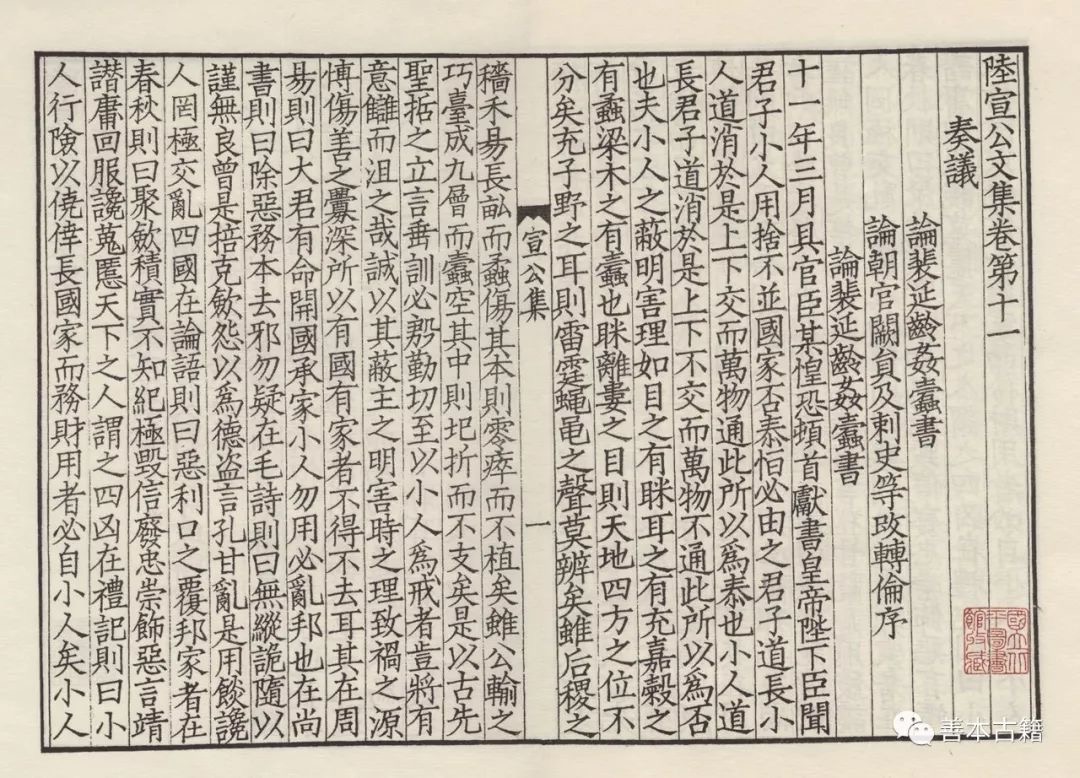 陸宣公文集卷第十一
奏議
論裴延齡姦蠹書
論朝官闕負及刺史等改轉倫序
論裴延齡姦蠹書
十一年三月具官臣某惶恐頓首獻書皇帝陛下臣聞
君子小人用捨不並國家否泰恒必由之君子道長小
人道消於是上下交而萬物通此所以爲泰也小人道
長君子道消於是上下不交而萬物不通此所以爲否
也夫小人之蔽明害理如目之有眯耳之有充嘉穀之
有蟊梁木之有蠹也眯離婁之目則天地四方之位不
分矣充子野之耳則雷霆蝇黽之聲莫辨矣雖后稷之
宣公集
一
穡禾易長畝而蟊傷其本則零瘁而不植矣雖公輸之
巧臺成九層而蠹空其中則圮折而不支矣是以古先
聖哲之立言垂訓必殷勤切至以小人爲戒者豈將有
意讎而沮之哉誠以其蔽主之明害時之理致禍之源
博傷善之釁深所以有國有家者不得不去耳其在周
易則曰大君有命開國承家小人勿用必亂邦也在尚
書則曰除惡務本去邪勿疑在毛詩則曰無縱詭隨以
謹無良曾是掊克斂怨以爲德盗言孔甘亂是用餤讒
人罔極交亂四國在論語則曰惡利口之覆邦家者在
春秋則曰聚斂積實不知紀極毀信廢忠崇飾惡言靖
譖庸回服讒蒐慝天下之人謂之四凶在禮記則曰小
人行險以僥倖長國家而務財用者必自小人矣小人
國立北
平圖書
館收藏
善本古籍